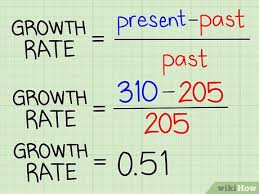 GROWTH RATE = present-past / past
GROWTH RATE = 310 - 205 / 205
GROWTH RATE = 0.51
wikiHow